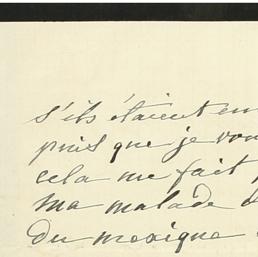 s'ils étaient en
puis que je vou
cela me fait
ma malade
du mexique